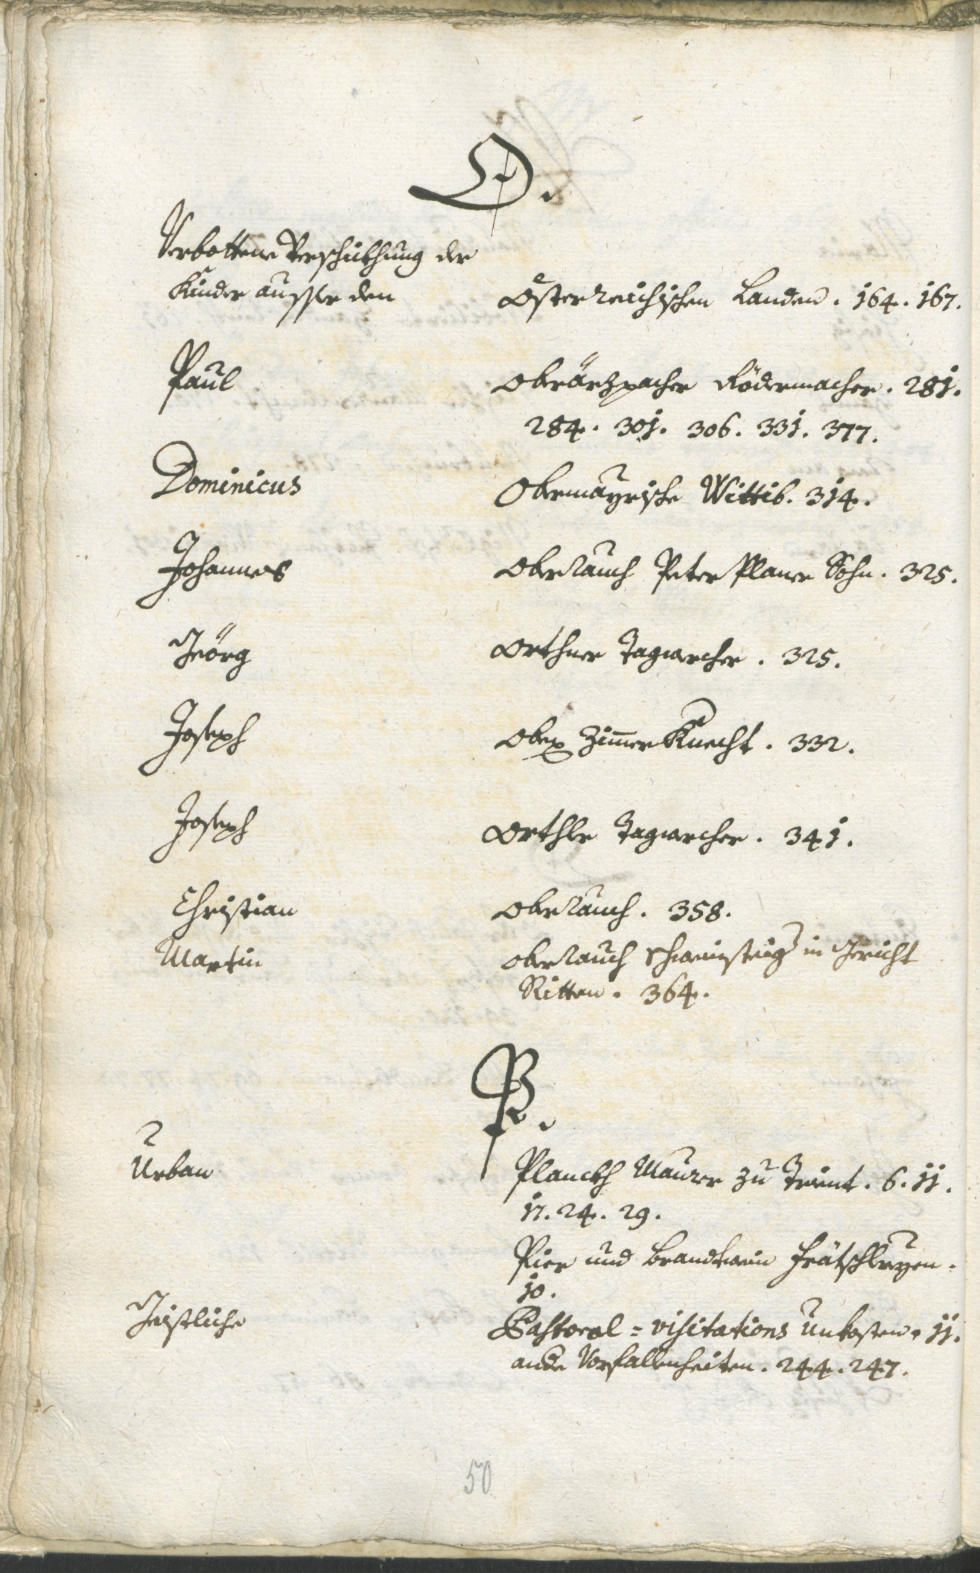 O.
Verbottene Verschückhung der
Kinder ausser den Österreichischen Landen. 164. 167.
Paul Oberärzpacher Rödermacher. 281.
284. 301. 306. 331. 377.
Dominicus Obermayrische Wittib. 314.
Johannes Oberrauch Peter Planer Sohn. 325.
Jeörg Orthner Tagwercher. 325.
Joseph Oberer Zimer Knecht. 332.
Joseph Orthler Tagwercher. 341.
Christian Oberrauch. 358.
Martin Oberrauch Schweinsteig in Gericht
Ritten. 364.
P.
Urban Planckh Maurer zu Terint. 6. 11.
17. 24. 29.
Pier und Brandtwein Frätschleyen.
10.
Geistliche Pastoral=Visitations Unkosten. 11.
andre Vorfallenheiten. 244. 247.
50